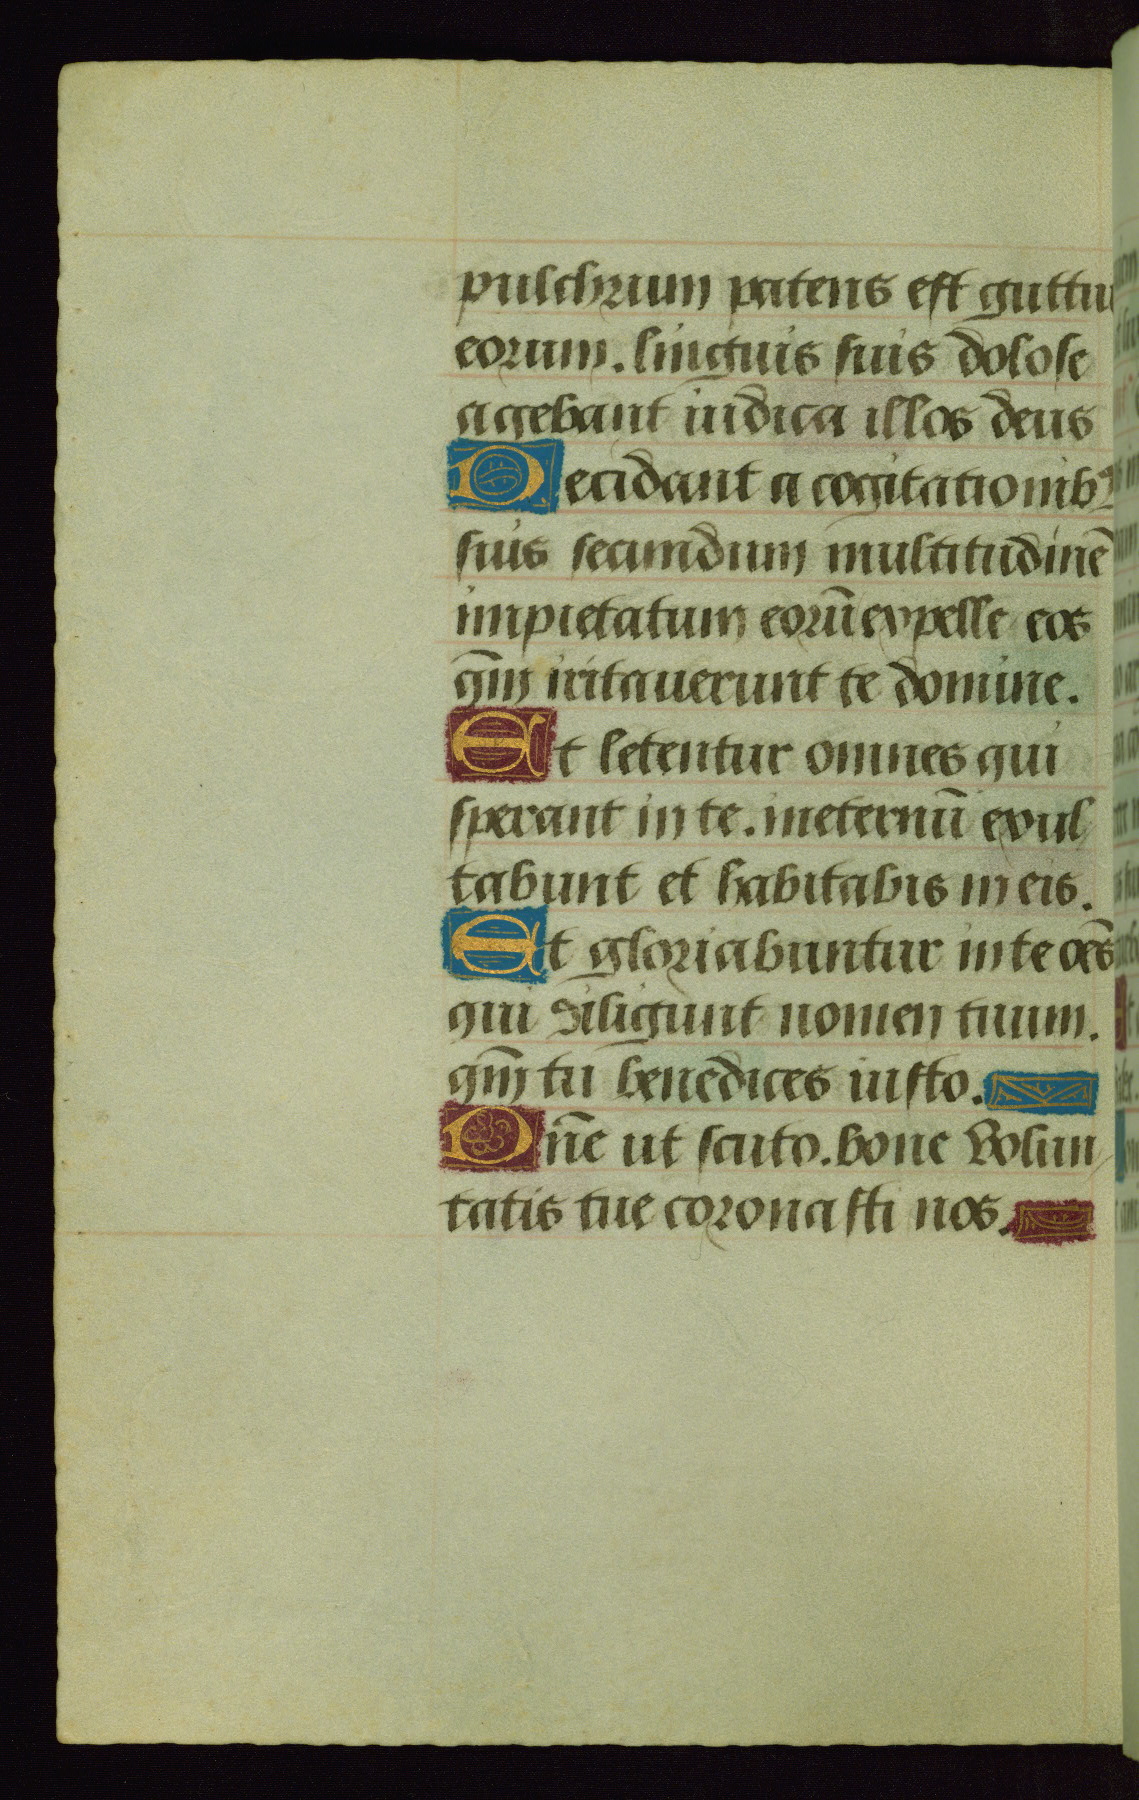 pulchrum patens est guttur
eorum. linguis suis dolose
agebant iudica illos deus
Decidant a cogitationibꝰ
suis secundum multitudinē
impietatum eorū expelle eos
qm̄ irritauerunt te domine.
Et letentur omnes qui
sperant in te. ineternū exul
tabunt et habitabis in eis.
Et gloriabuntur in te oēs
qui diligunt nomen tuum.
qm̄ tu benedices iusto.
Dn̄e ut scuto. bone volun
tatis tue coronasti nos.